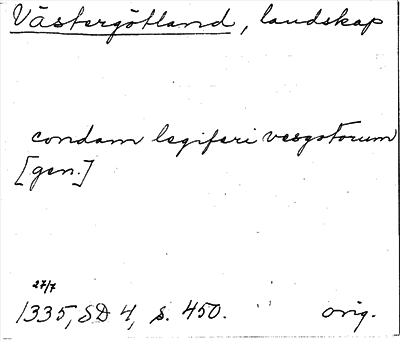 Västergötland, landskap
condam legiferi vesgotorum
[gen.]
27/7
1335, SD 4, s. 450. orig.